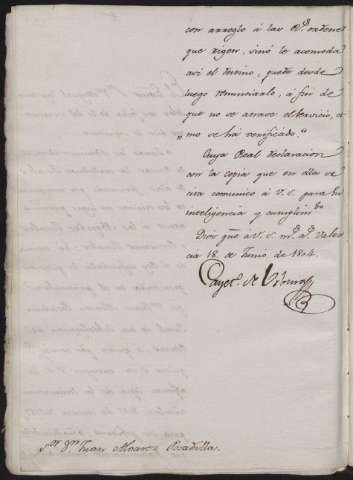 con arreglo á las R.s ordene
que rigen, sinó le acomoda
asi el termino, puede desde
luego renunciarlo, á fin de
que no se atrase el servicio, co
"mo se há verificado."
Cuya Real declaracion
con la copia que en ella se
cita comunico á V. S. para su
inteligencia y cumplim.to
Dios gue á V. S. m.s a.s Valen
cia 18. de Junio de 1804.
Cayet.o de
S.or D.n Juan Alvarez Posadilla.